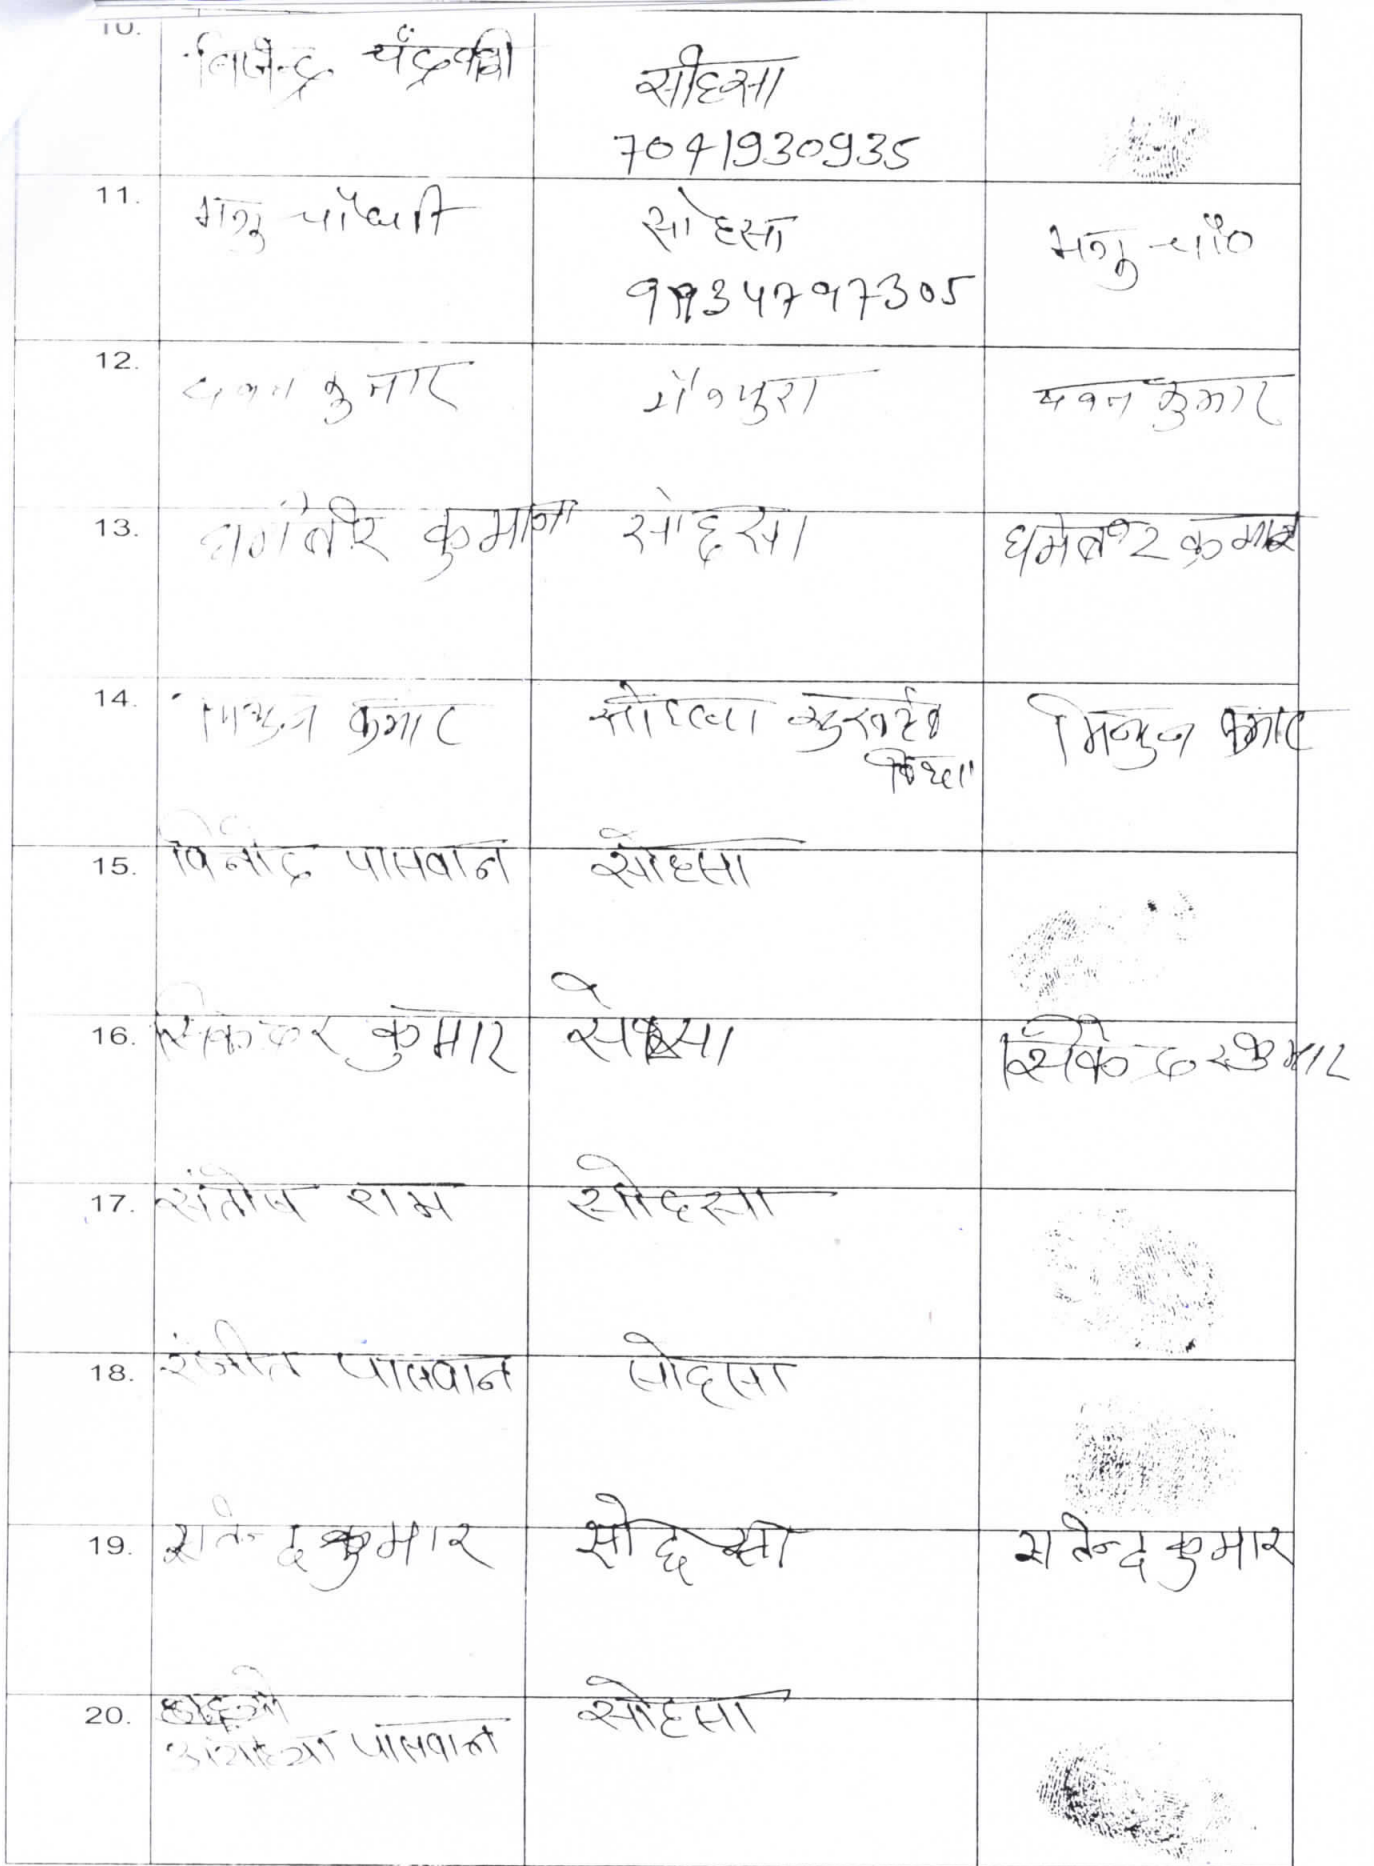 10.
बिजेन्द्र चंद्रवंशी
सोहसा
7041930935
11.
मनु चौधरी
सोहसा
मनु चौ०
12.
पवन कुमार
पवन कुमार
13.
धर्मबीर कुमार
सोहसा
धर्मबीर कुमार
14.
मिथुन कुमार
सोहसा
मिथुन कुमार
15.
विनोद पासवान
सोहसा
16.
सिकन्दर कुमार
सोहसा
सिकेन्दर कुमार
17.
संतोष राम
सोहसा
18.
रंजीत पासवान
सोहसा
19.
कुमार
सोहसा
कुमार
20.
अयोध्या पासवान
सोहसा